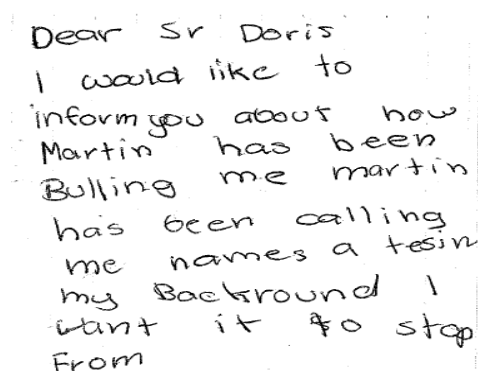 Dear Sr Doris
I would like to
inform you about how
Martin has been
Bulling me martin
has been calling
me names a tesin
my Backround I
want it to stop
From